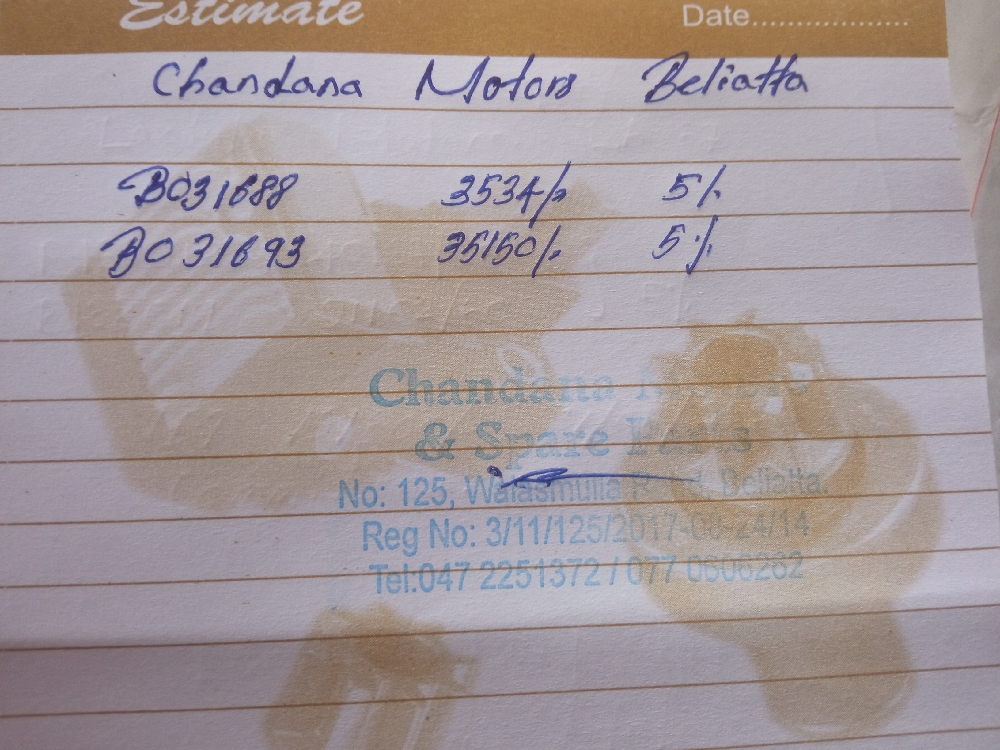 Estimate
Date...................
Chandana Motors Beliatta
B031688 3534/- 5%
B031693 35150/- 5%
Chandana Motors
& Spare Parts
No: 125, Walasmulla Road, Beliatta.
Reg No: 3/11/125/2017-08-24/14
Tel:047 2251372 / 077 0606282